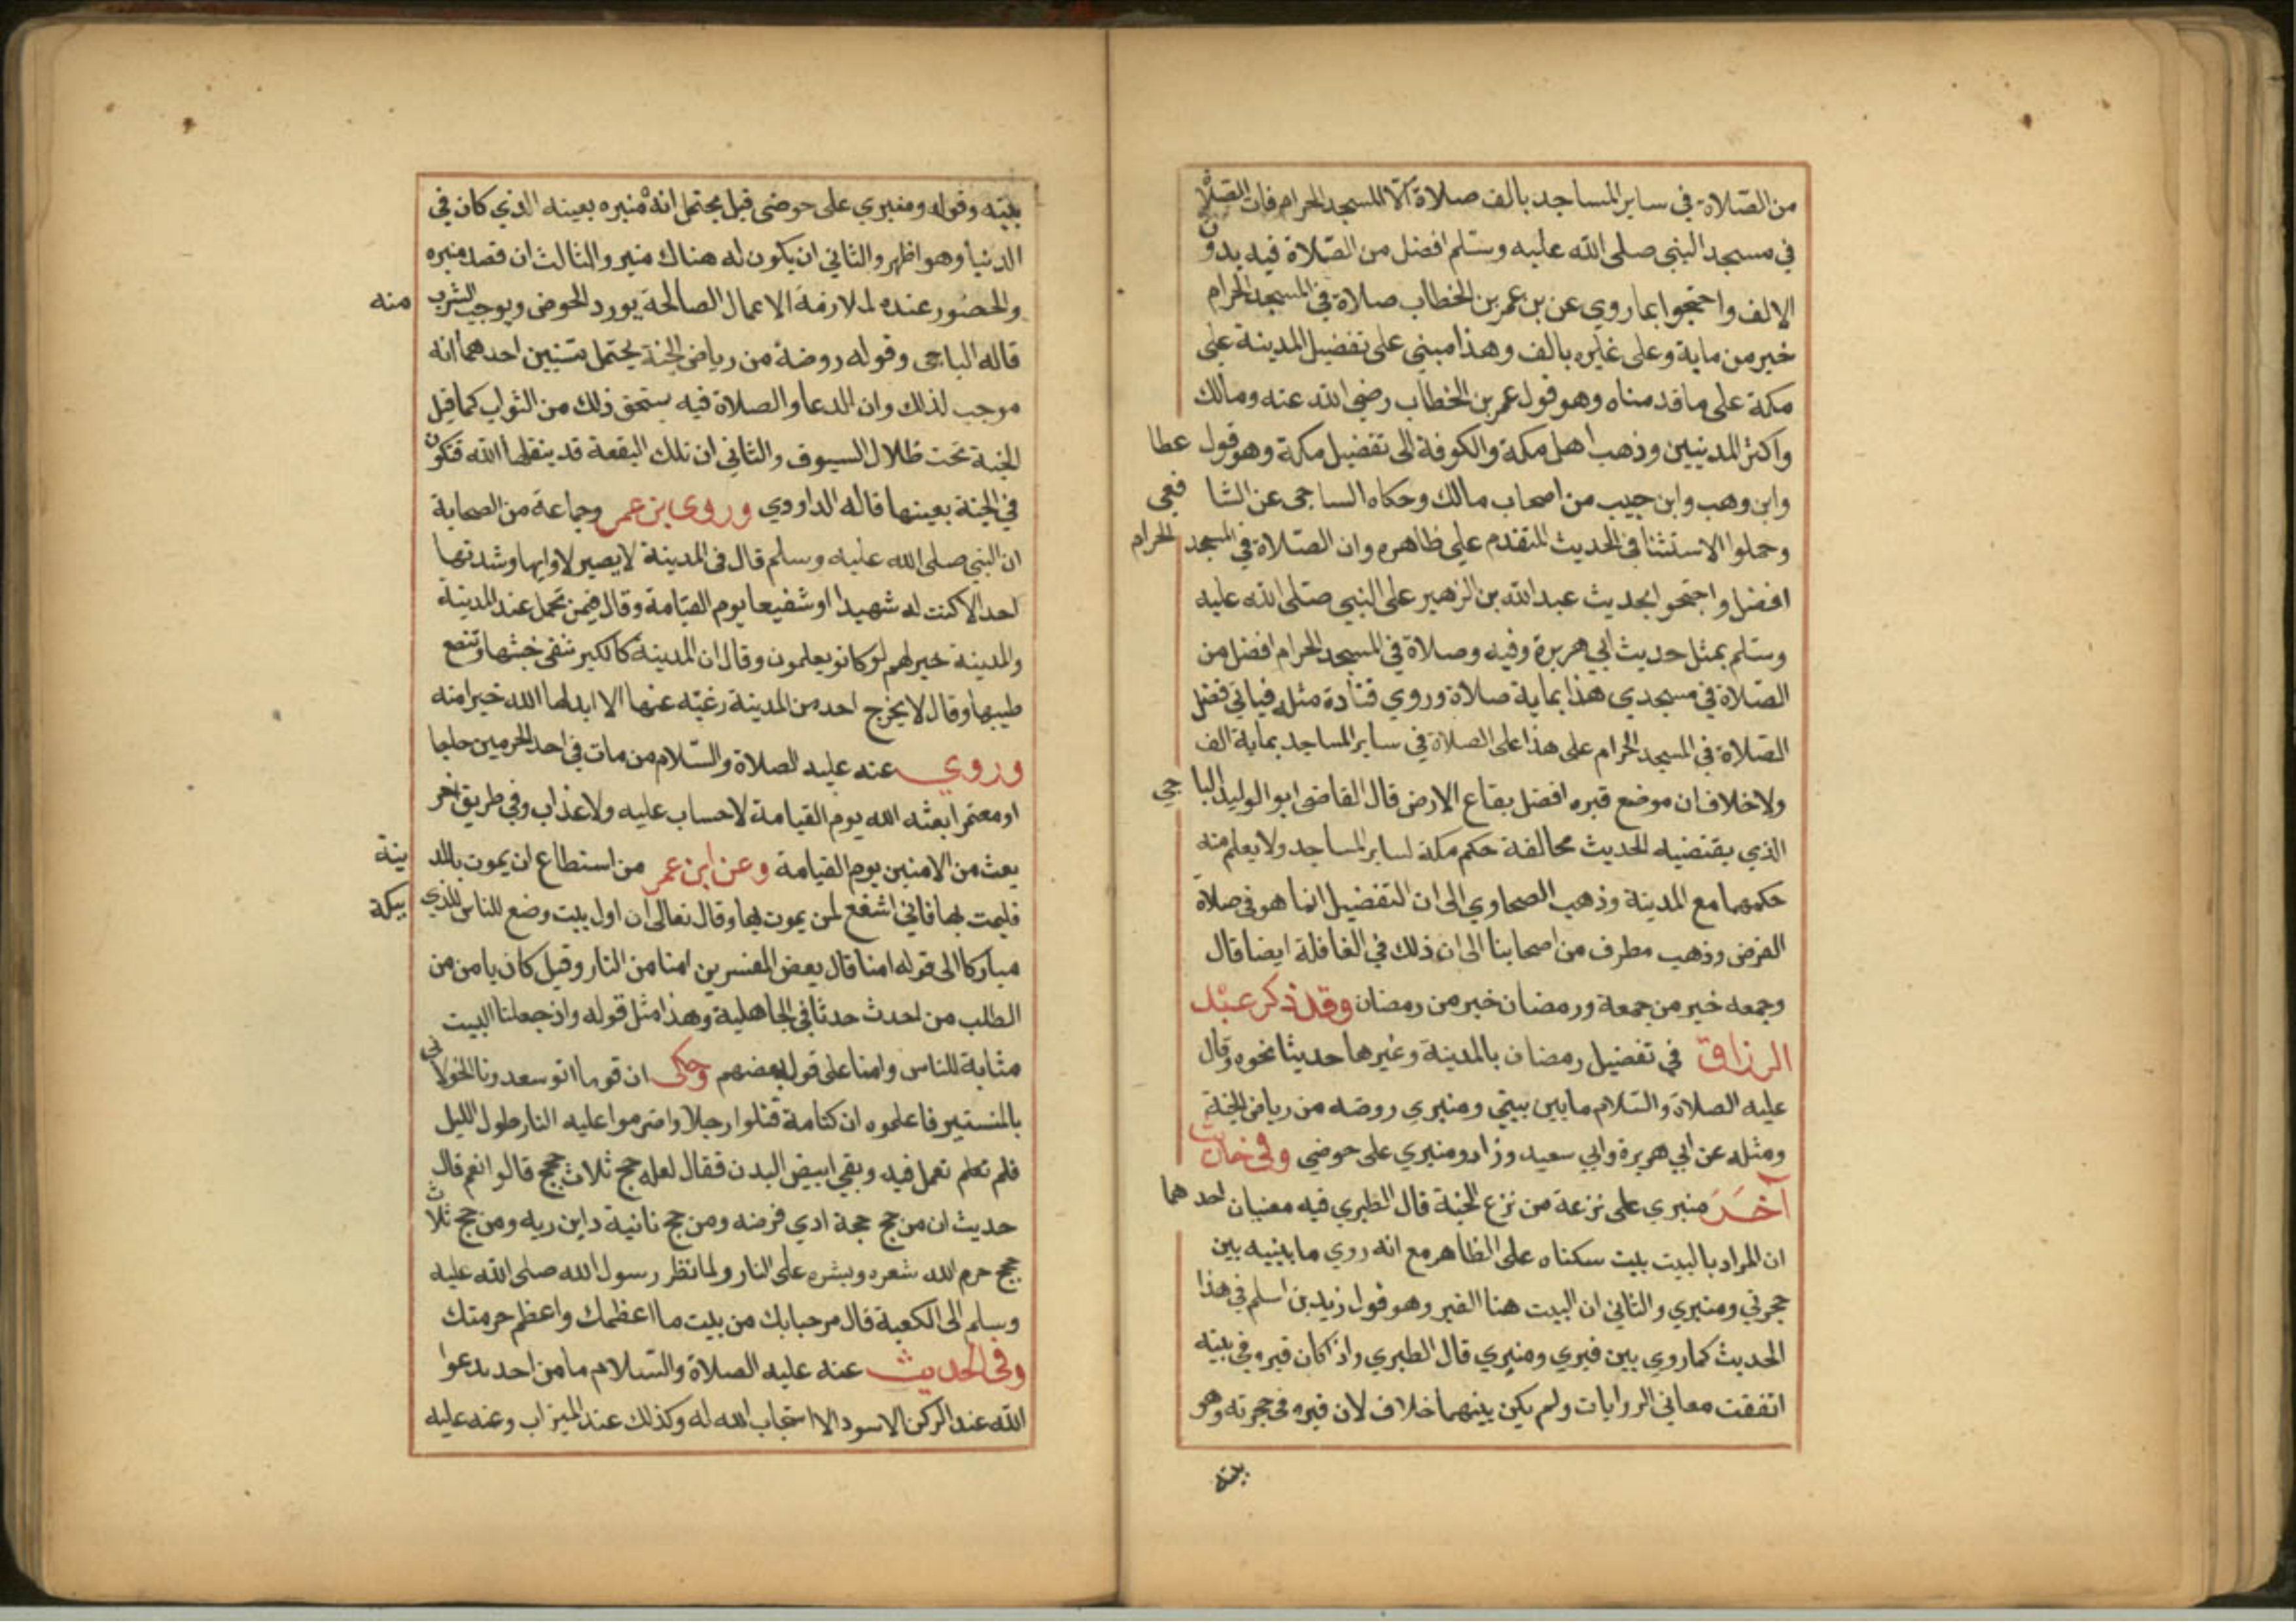 من الصلاة في ساير المساجد بالف صلاة الا المسجد الحرام فان الصلاة
في مسجد النبي صلى الله عليه وسلم افضل من الصلاة فيه بدون
الالف واحتجوا بما روي عن بن عمر بن الخطاب صلاة في المسجد الحرام
خير من ماية وعلى غايره بالف وهذا مبني على تفضيل المدينة على
مكة على ما قدمناه وهو قول عمر بن الخطاب رضي الله عنه ومالك
واكثر المدنيين وذهب اهل مكة والكوفة الى تفضيل مكة وهو قول عطا
وابن وهب وابن حبيب من اصحاب مالك وحكاه الساجى عن الشا فعى
وحملوا الاستثنا في الحديث المتقدم على ظاهره وان الصلاة في المسجد الحرام
افضل واحتجوا بحديث عبد الله بن الزهير على النبي صلى الله عليه
وسلم بمثل حديث ابي هريرة وفيه وصلاة في المسجد الحرام افضل من
الصلاة في مسجدي هذا بماية صلاة وروي قتادة مثله فياتي فضل
الصلاة في المسجد الحرام على هذا على الصلاة في ساير المساجد بماية الف
ولاخلاف ان موضع قبره افضل بقاع الارض قال القاضى ابو الوليد البا جي
الذي يقتضيه الحديث مخالفة حكم مكة لساير المساجد ولا يعلم منه
حكمهما مع المدينة وذهب الصحاوي الى ان التفضيل انما هو في صلاة
الفرض وذهب مطرف من اصحابنا الى ان ذلك في الغافلة ايضا قال
وجمعه خير من جمعة ورمضان خير من رمضان وقد ذكر عبد
الرزاق في تفضيل رمضان بالمدينة وغيرها حديثا نحوه وقال
عليه الصلاة والسلام ما بين بيتي ومنبري روضه من رياض الجنة
ومثله عن ابي هريرة وابي سعيد وزاد ومنبري على حوضي وفى
آخر منبري على نزعة من نزع الجنة قال الطبري فيه معنيان احد هما
ان المراد بالبيت بيت سكناه على الظاهر مع انه روي ما يبنيه بين
حجرتي ومنبري والثاني ان البيت هنا القبر وهو قول زيد بن اسلم في هذا
الحديث كما روي بين قبري ومنبري قال الطبري واذا كان قبره في بيته
اتفقت معاني الروايات ولم يكن بينهما خلاف لان قبره في حجرته وهو
بيته
بيته وقوله ومنبري على حوضى قيل يحتمل انه منبره بعينه الذي كان في
الدنيا وهو اظهر والثاني ان يكون له هناك منبر والثالث ان قصد منبره
والحضور عنده لملازمة الاعمال الصالحة يورد الحوض ويوجب الشرب منه
قاله الباجى وقوله روضة من رياض الجنة يحتمل بتنيين احدهما انه
موجب لذلك وان الدعا والصلاة فيه يستحق ذلك من الثواب كما قيل
الجنة تحت ظلال السيوف والثاني ان تلك البقعة قد ينقلها الله فتكون
في الجنة بعينها قاله الداودي وروى بن عمر وجماعة من الصحابة
ان النبي صلى الله عليه وسلم قال فى المدينة لا يصبر لاوايها وشدتها
احد الا كنت له شهيدا او شفيعا يوم القيامة وقال فيمن تحمل عند المدينة
والمدينة خير لهم لو كانو يعلمون وقال ان المدينة كالكير تنفى خبثها وتنصع
طيبها وقال لا يخرج احد من المدينة رغبة عنها الا ابدلها الله خيرا منه
وروي عنه عليه الصلاة والسلام من مات في احد الحرمين حاجا
او معتمرا بعثه الله يوم القيامة لا حساب عليه ولا عذاب وفي طريق اخر
بعث من الامنين يوم القيامة وعن ابن عمر من استطاع ان يموت بالمد ينة
فليمت بها فاني اشفع لمن يموت بها وقال تعالى ان اول بيت وضع للناس للذي ببكة
مباركا الى قوله امنا قال بعض المفسرين امنا من النار وقيل كان يامن من
الطلب من احدث حدثا في الجاهلية وهذا مثل قوله واذ جعلنا البيت
مثابة للناس وامنا على قول بعضهم وحكى ان قوما اتو سعدونا الخولانى
بالمنستير فاعلموه ان كتامة قتلوا رجلا واضرموا عليه النار طول الليل
فلم تعلم تعمل فيه وبقي ابيض البدن فقال لعله حج ثلاث حجج قالوا نعم قال
حديث ان من حج حجة ادي فرضه ومن حج ثانية داين ربه ومن حج ثلاث
حجج حرم الله شعره وبشره على النار ولما نظر رسول الله صلى الله عليه
وسلم الى الكعبة قال مرحبا بك من بيت ما اعظمك واعظم حرمتك
وفى الحديث عنه عليه الصلاة والسلام ما من احد يدعوا
الله عند الركن الاسود الا استجاب الله له وكذلك عند الميزاب وعنه عليه